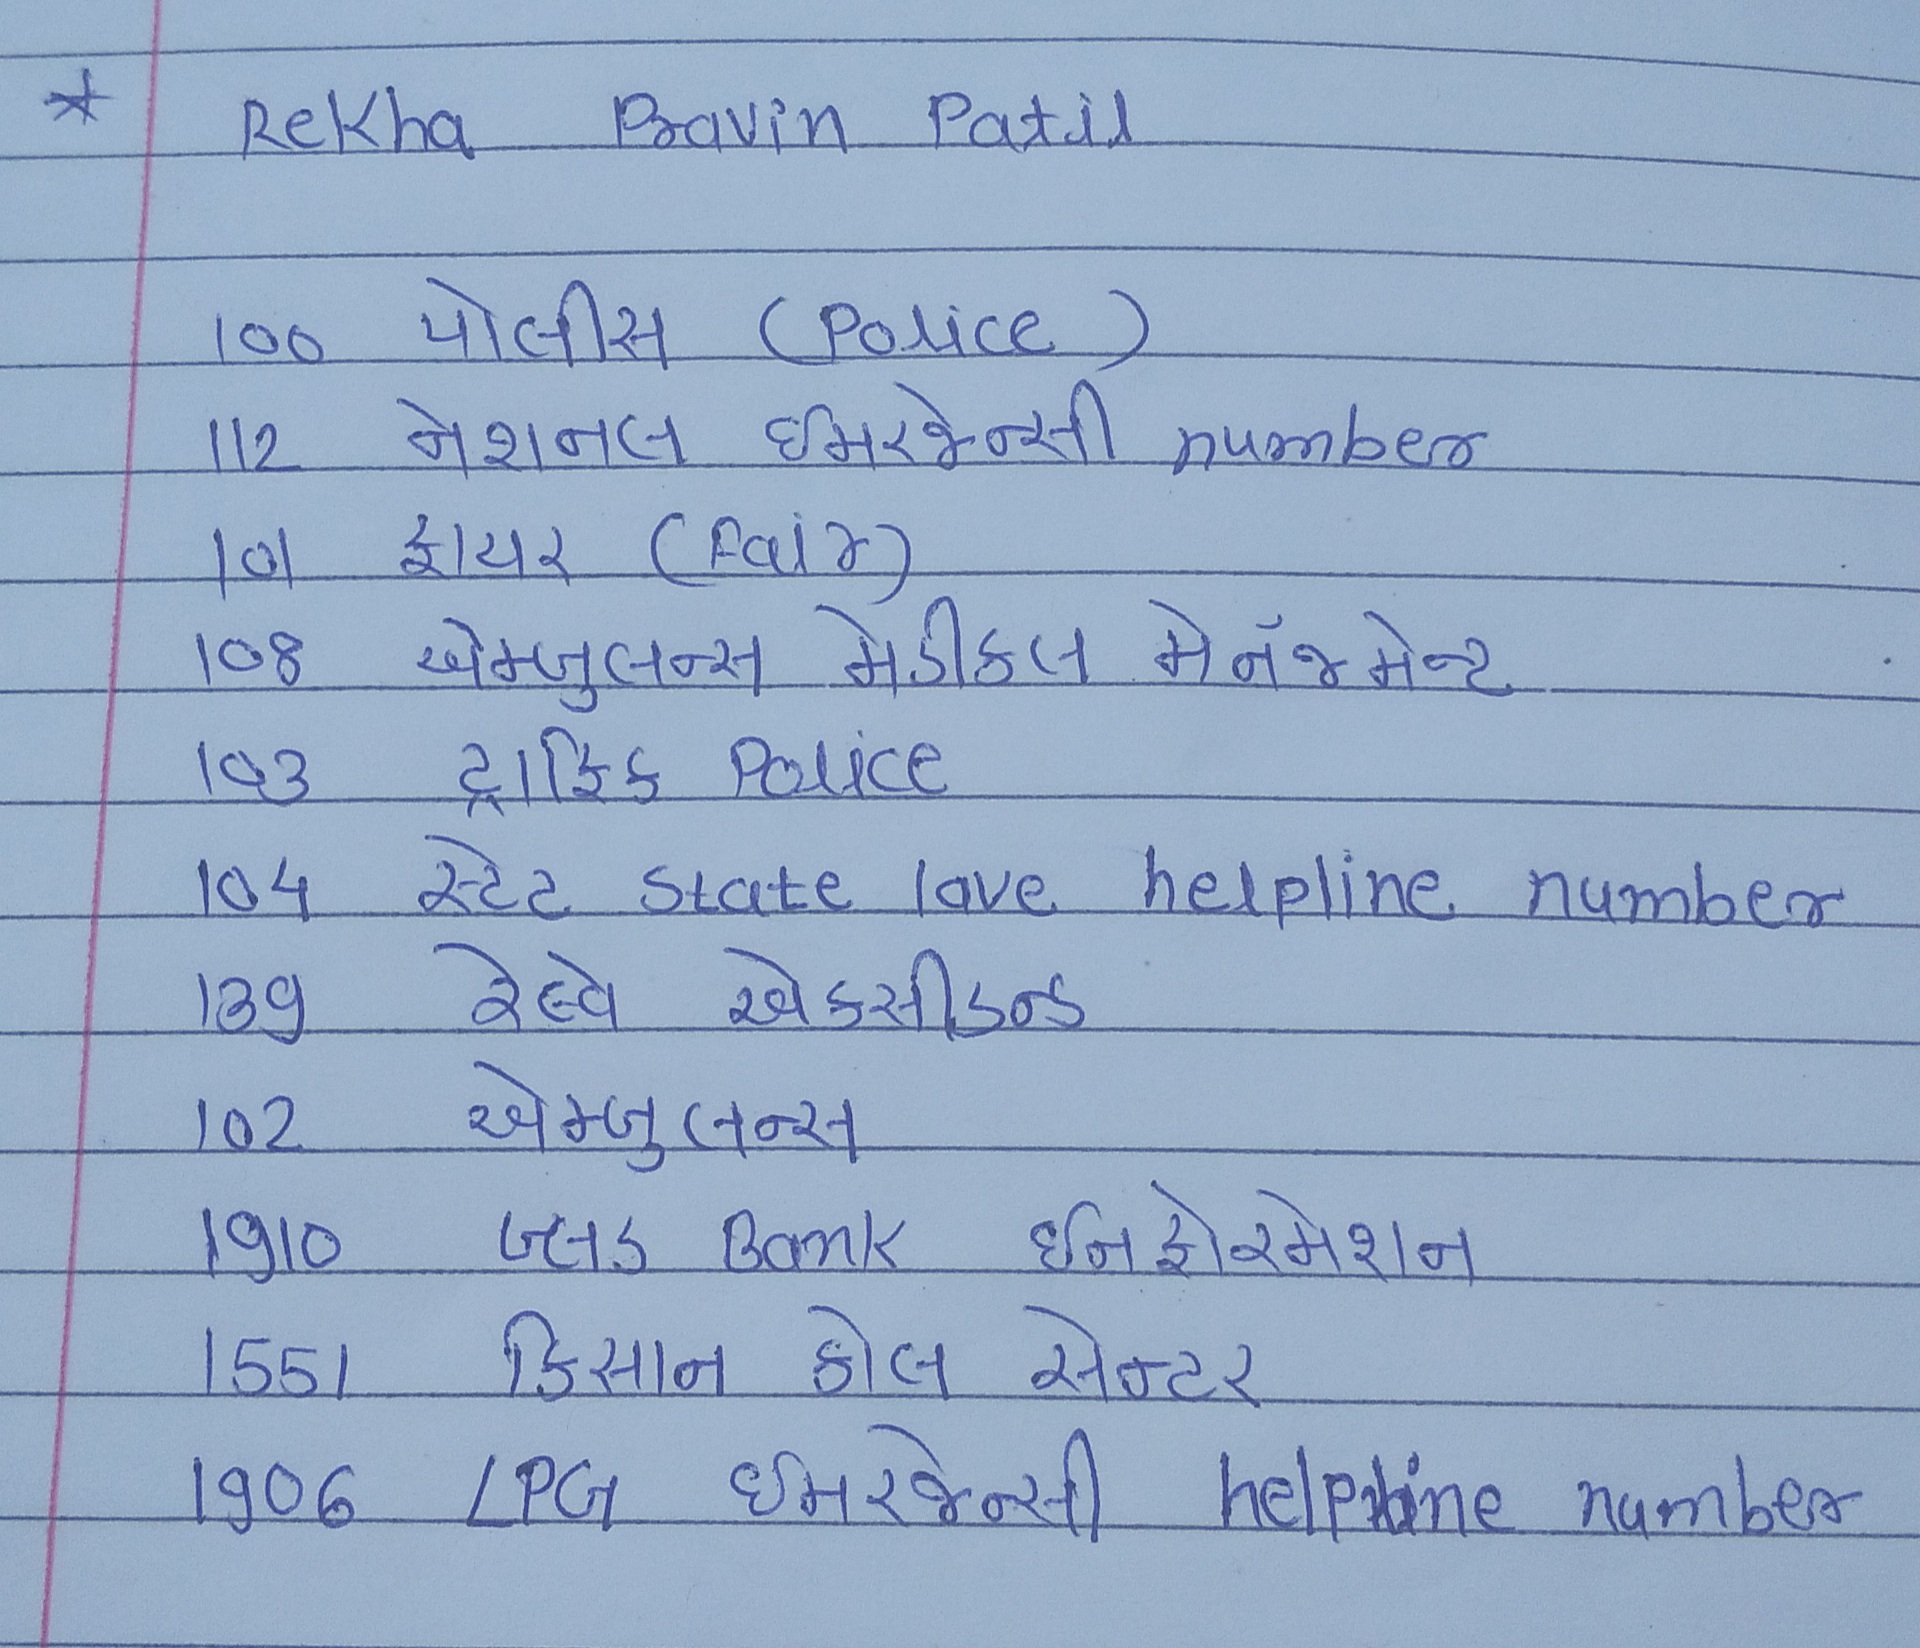 * Rekha Pravin Patil
100 પોલીસ (Police)
112 નેશનલ ઈમરજેન્સી number
101 ફાયર (Fair)
108 એમ્બુલન્સ મેડીકલ મેનૅજમેન્ટ
103 ટ્રાફિક Police
104 સ્ટેટ State lave helpline number
139 રેલ્વે એકસીડન્ડ
102 એમ્બુલન્સ
1910 બ્લડ Bank ઈનફોરમેશન
1551 કિસાન કોલ સેન્ટર
1906 LPG ઈમરજેન્સી helpline number